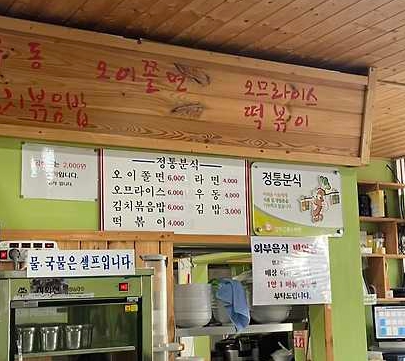 우동
오이쫄면
오므라이스
김치볶음밥
떡볶이
2,000원
정통분식
오이쫄면 6,000 라면 4,000
오므라이스 6,000 우동 4,000
김치볶음밥 6,000 김밥 3,000
떡볶이 4,000
정통분식
외부음식 반입
1인 1메뉴
부탁드립니다.
물·국물은 셀프입니다